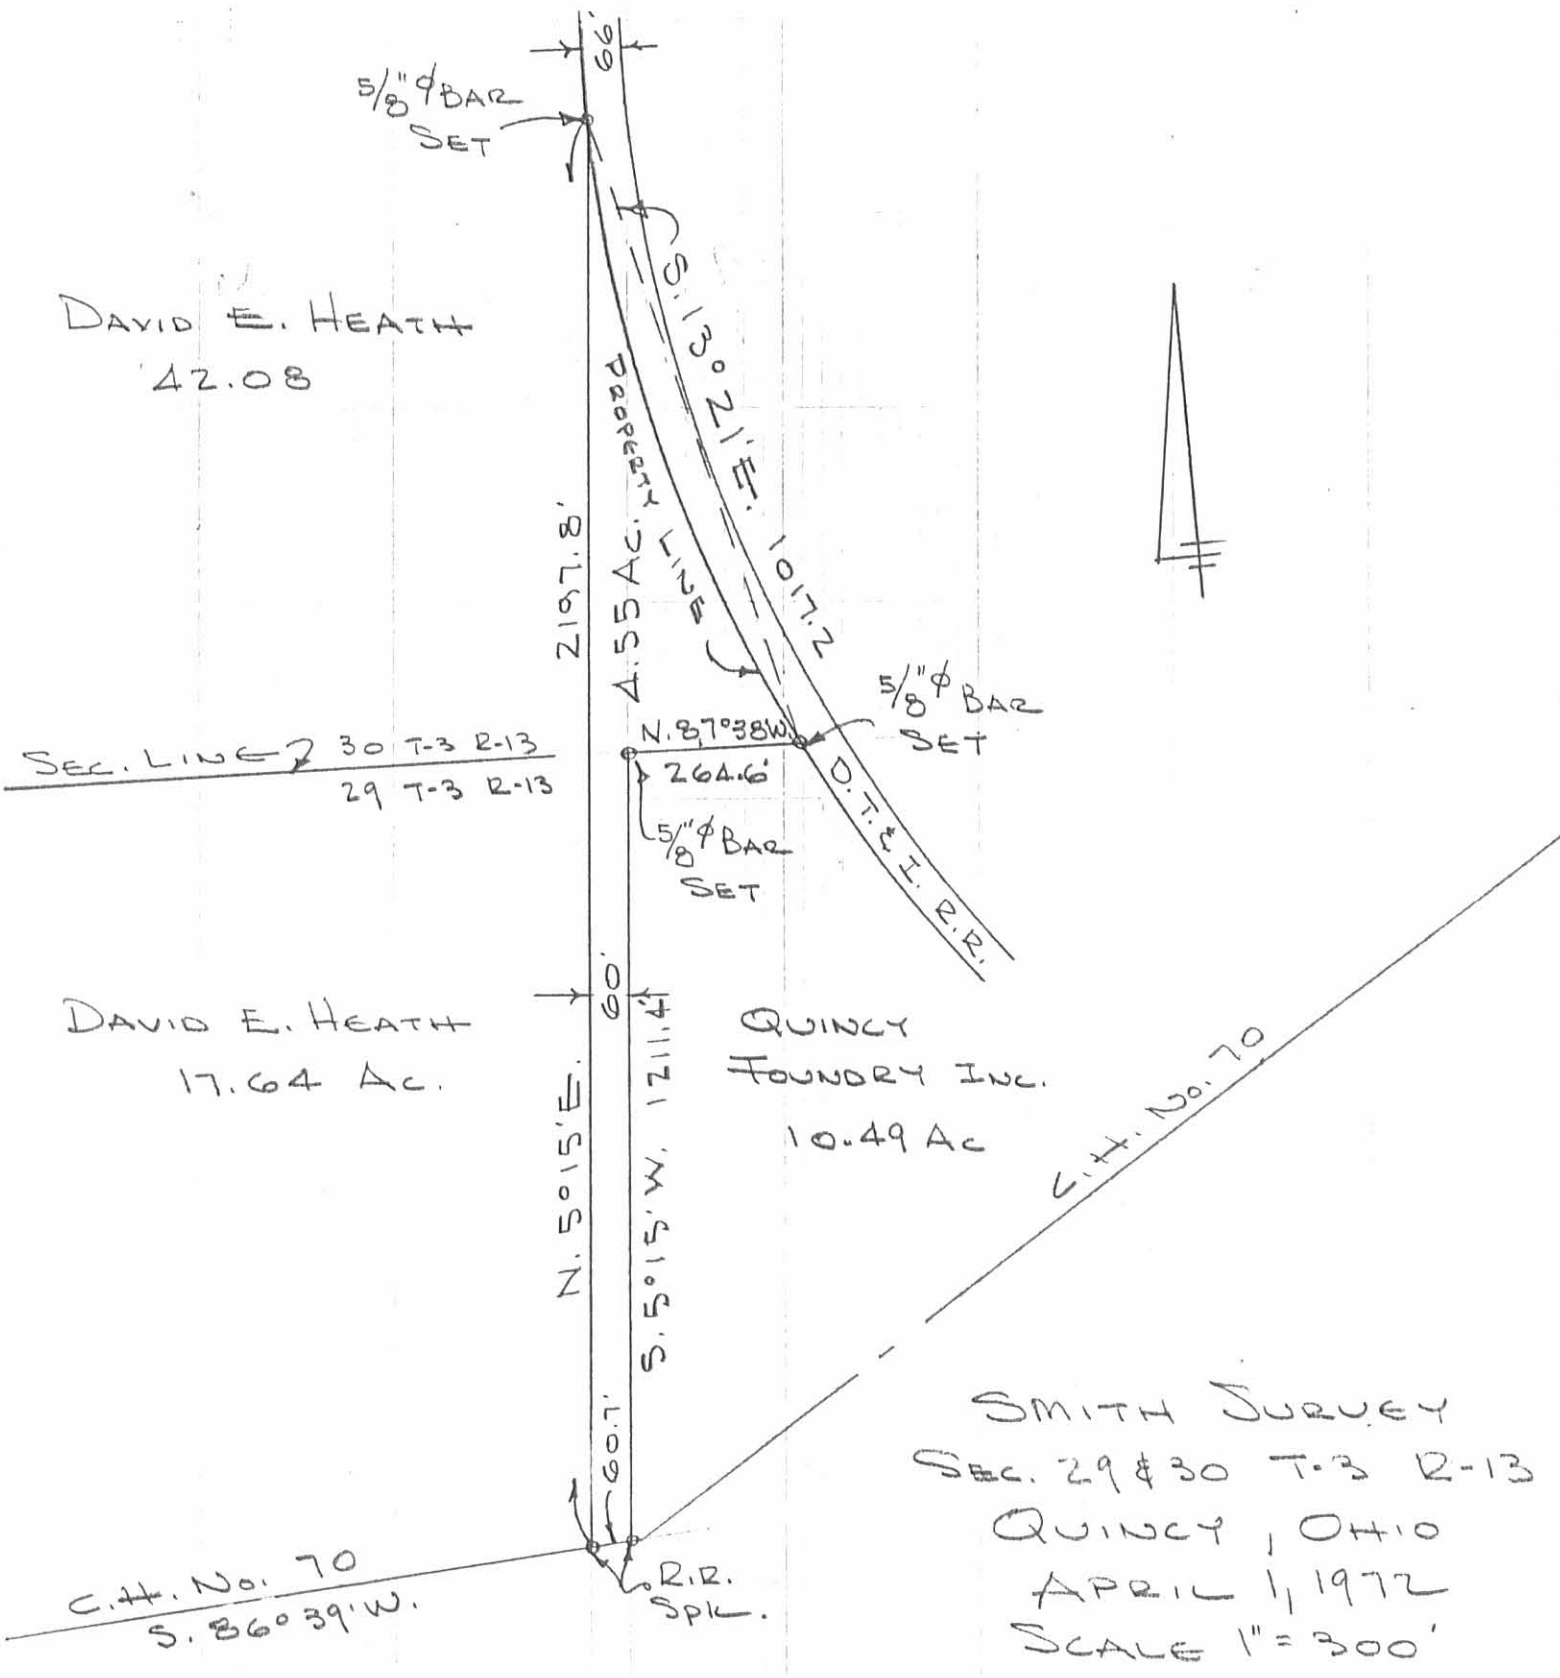 66'
5/8" ϕ BAR
SET
DAVID E. HEATH
42.08
S. 13° 21' E. 1017.2
PROPERTY LINE
2197.8'
4.55 AC.
5/8" ϕ BAR
SET
N. 87° 38' W.
264.6'
SEC. LINE 30 T-3 R-13
29 T-3 R-13
5/8" ϕ BAR
SET
D. T. & I. R.R.
60'
DAVID E. HEATH
17.64 AC.
QUINCY
FOUNDRY INC.
10.49 AC
N. 5° 15' E.
S. 5° 15' W. 1211.4'
C.H. No. 70
60.7'
C.H. No. 70
S. 86° 39' W.
R.R.
SPK.
SMITH SURVEY
SEC. 29 & 30 T-3 R-13
QUINCY, OHIO
APRIL 1, 1972
SCALE 1" = 300'